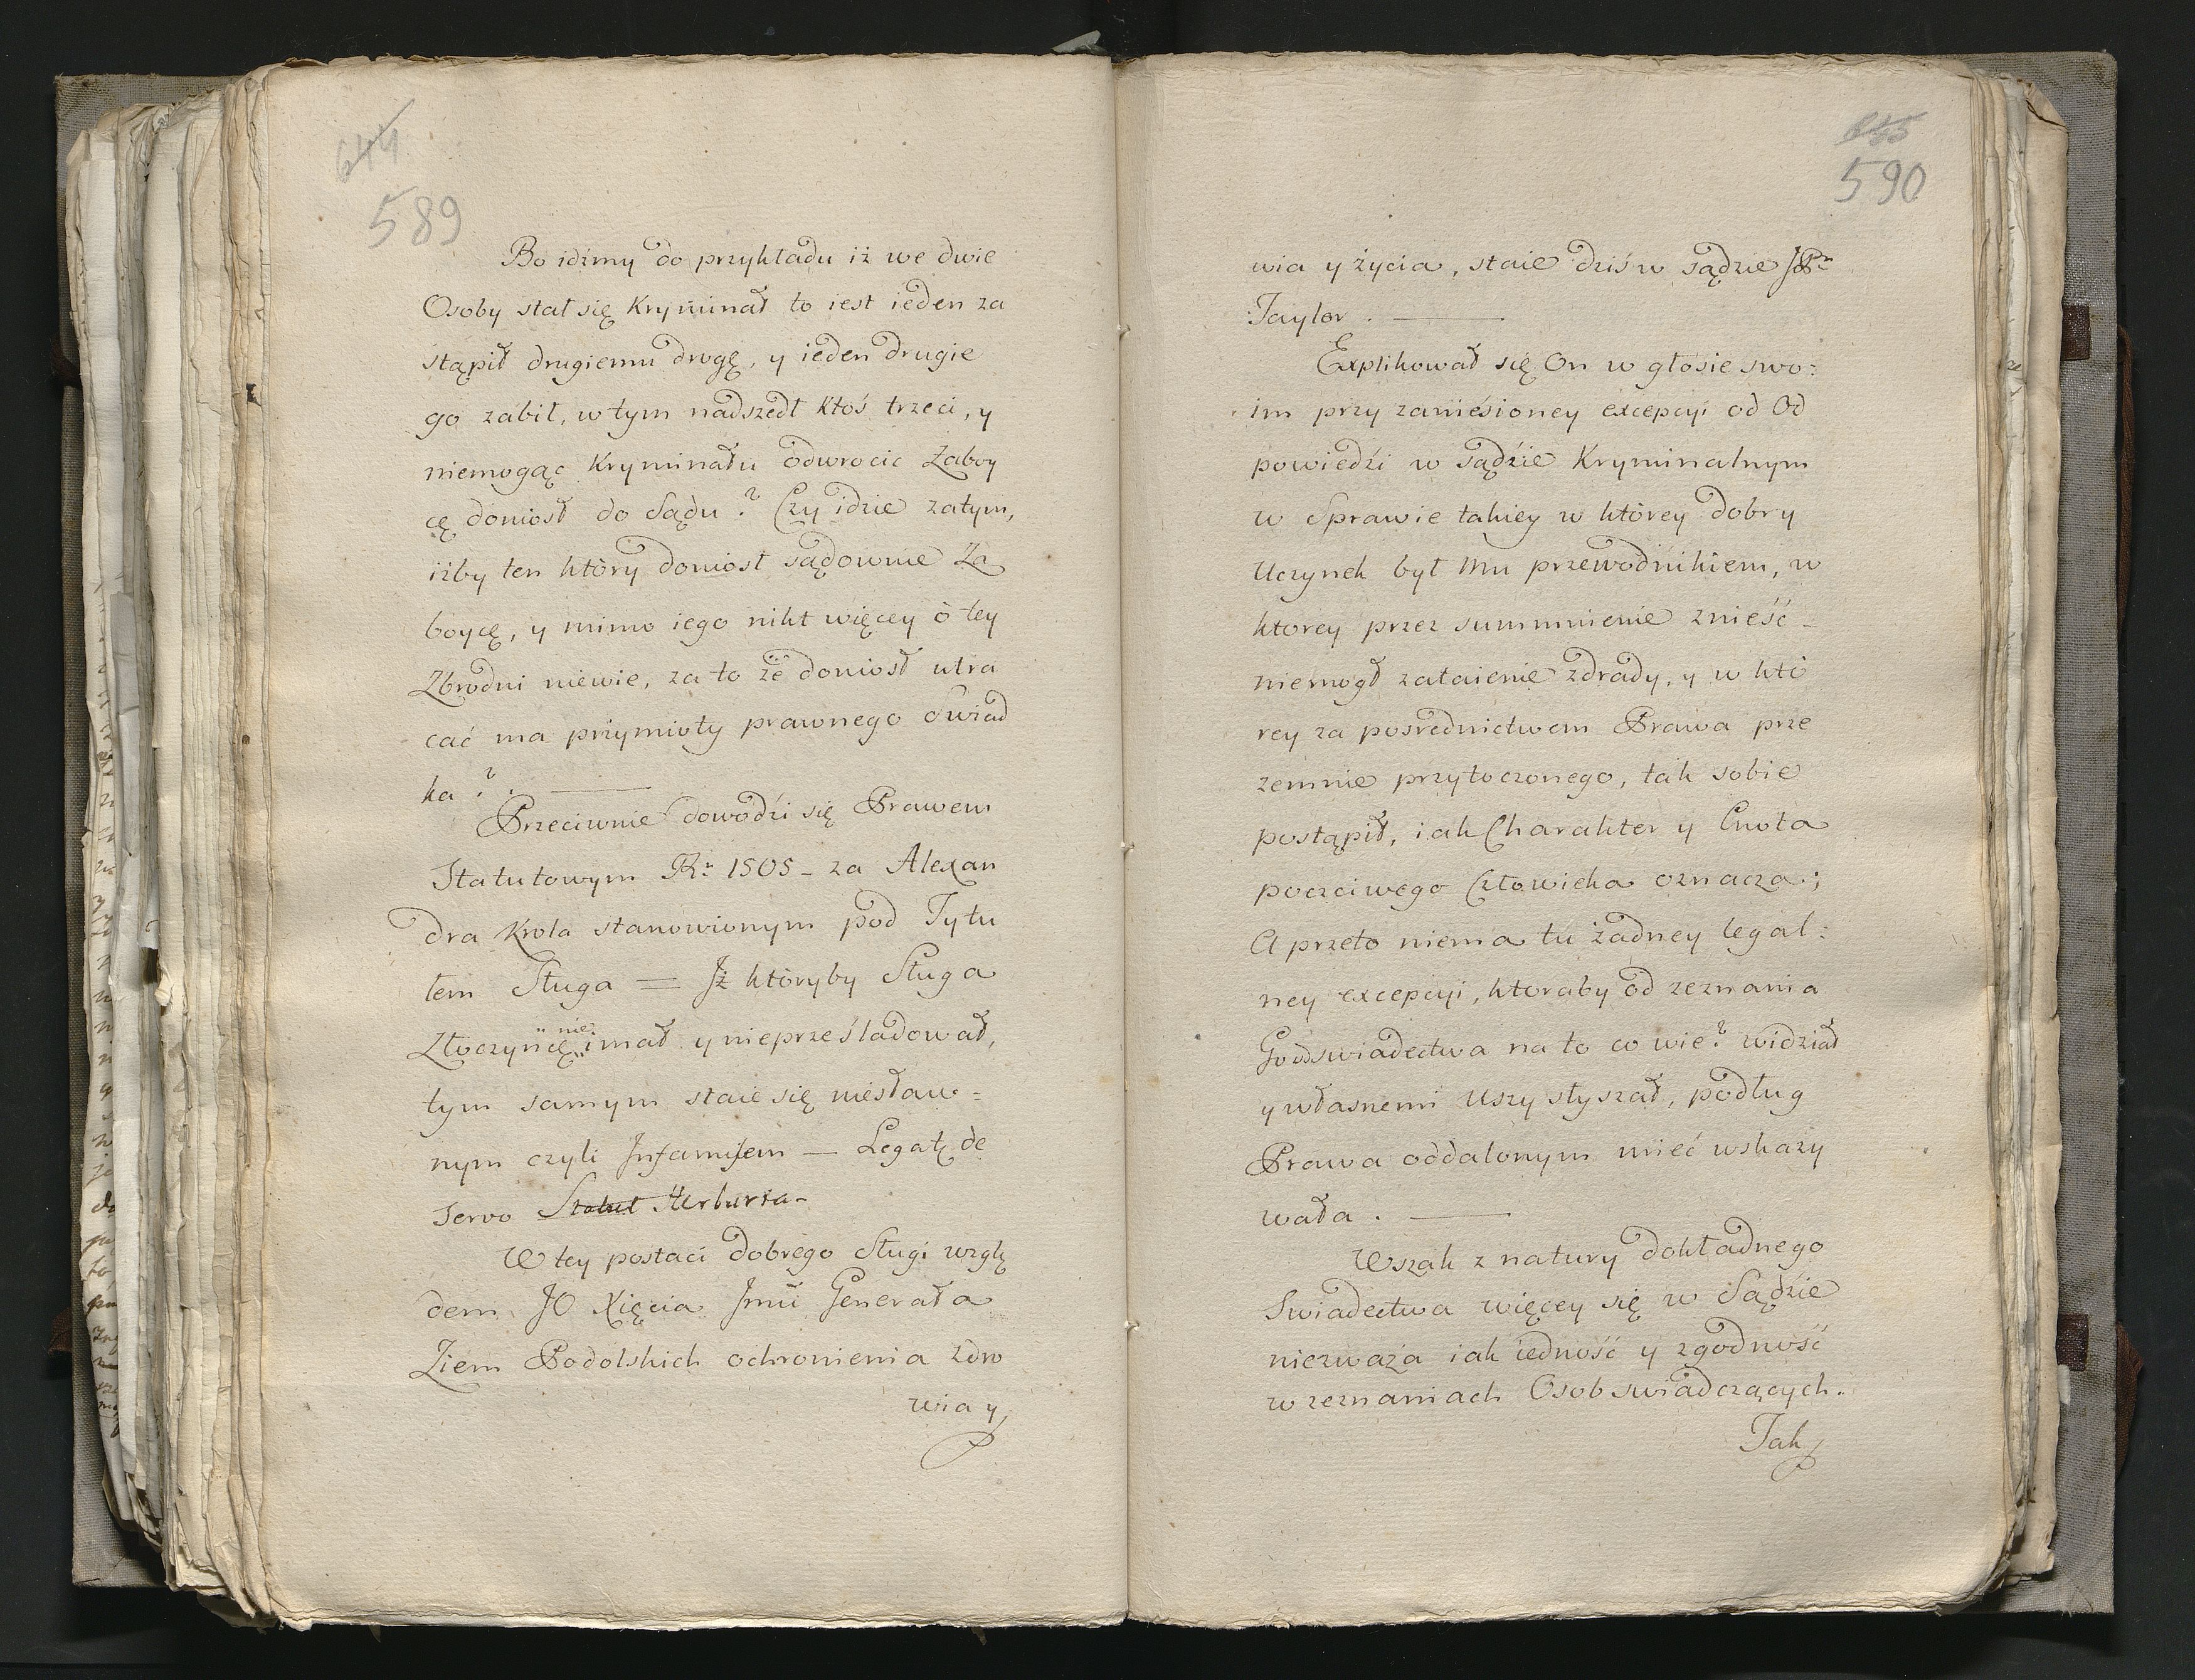 644
589
Bo idźmy do przykładu iż we dwie
Osoby stał się Kryminał to iest ieden za
stąpił drugiemu drogę, y ieden drugie
go zabił, w tym nadszedł Ktoś trzeci, y
niemogąc Kryminału odwrocic Zaboy
cę doniosł do Sądu? Czy idzie zatym,
iżby ten który doniosł sądownie Za
boycę, y mimo iego nikt więcey o tey
Zbrodni niewie, za to że doniosł utra
cać ma przymioty prawnego Swiad
ka?
Przeciwnie dowodzi się Prawem
Statutowym R: 1505 - za Alexan
dra Krola stanowionym pod Tytu
łem Sługa = Iż któryby Sługa
nie
Złoczyńcę imał y nieprześladował,
tym samym staie się niesław=
nym czyli Infamisem — Legat de
Servo Statut Herburta -
W tey postaci dobrego Sługi wzglę
dem JO Xięcia Jmći Generała
Ziem Podolskich ochronienia zdro
wia y
645
590
wia y życia, staie dziś w Sądzie JPn
Taylor.
Explikował się On w głosie swo:
im przy zaniesioney excepcyi od Od
powiedzi w Sądzie Kryminalnym
w Sprawie takiey w którey dobry
Uczynek był Mu przewodnikiem, w
ktorey przez summnienie znieść -
niemogł zataienie zdrady, y w któ
rey za posrednictwem Prawa prze
zemnie przytoczonego, tak sobie
postąpił, iak Charakter y Cnota
poczciwego Człowieka oznacza;
A przeto niema tu żadney legal:
ney excepcyi, ktoraby od zeznania
Go od swiadectwa na to co wie? widział
y własnemi Uszy słyszał, podług
Prawa oddalonym mieć wskazy
wała.
Wszak z natury dokładnego
Swiadectwa więcey się w Sądzie
niezważa iak iedność y zgodność
w zeznaniach Osob swiadczących.
Tak